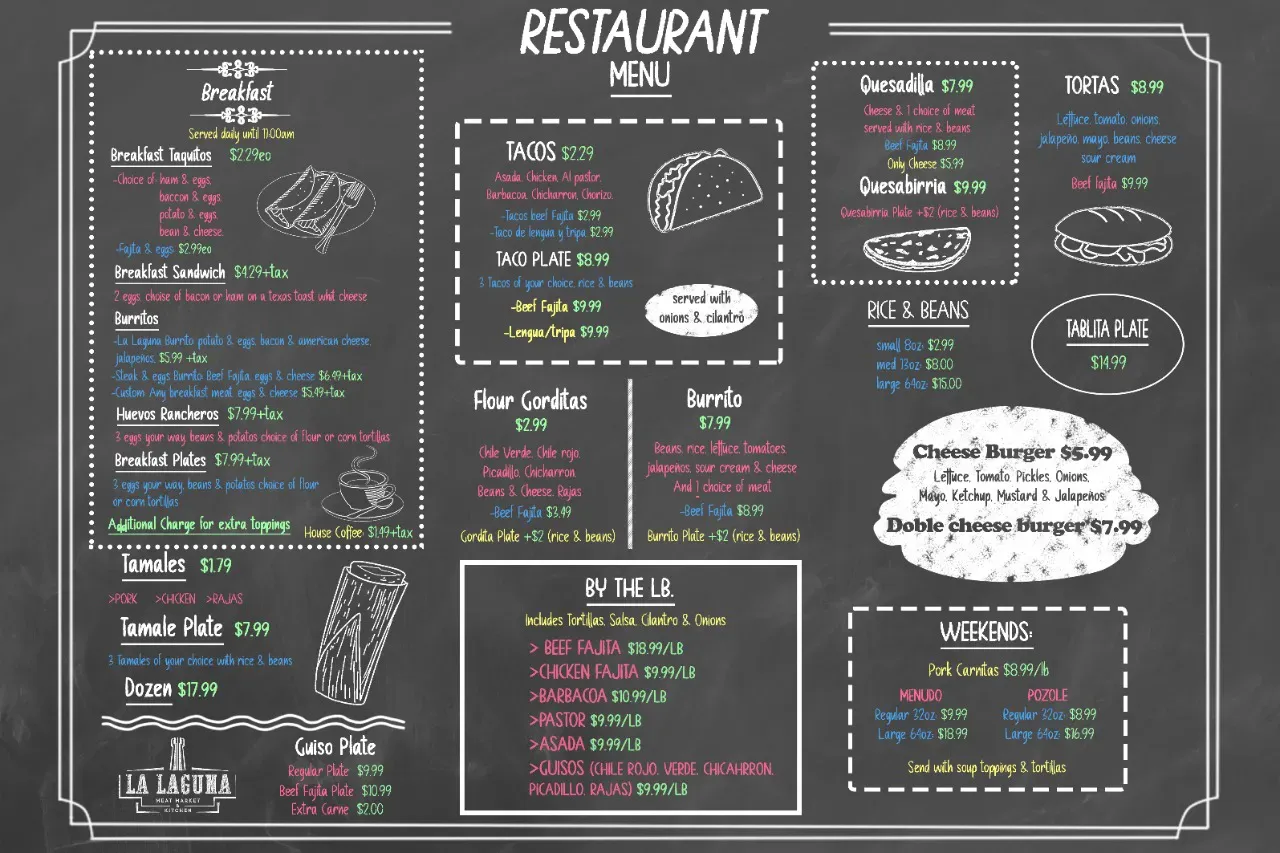 RESTAURANT
MENU
Breakfast
Served daily until 11:00am
Breakfast Taquitos $2.29eo
-Choice of: ham & eggs,
baccon & eggs
potato & eggs,
bean & cheese.
-Fajita & eggs $2.99eo
Breakfast Sandwich $4.29+tax
2 eggs, choise of bacon or ham on a texas toast whit cheese
Burritos
-La Laguna Burrito potato & eggs, bacon & american cheese,
jalapeños. $5.99 +tax
-Steak & eggs Burrito: Beef Fajita, eggs & cheese $6.49+tax
-Custom: Any breakfast meat, eggs & cheese $5.49+tax
Huevos Rancheros $7.99+tax
3 eggs your way, beans & potatos choice of flour or corn tortillas
Breakfast Plates $7.99+tax
3 eggs your way, beans & potatos choice of flour
or corn tortillas
Additional Charge for extra toppings
House Coffee: $1.49+tax
Tamales $1.79
>PORK >CHICKEN >RAJAS
Tamale Plate $7.99
3 Tamales of your choice with rice & beans
Dozen $17.99
LA LAGUNA
MEAT MARKET
&
KITCHEN
Guiso Plate
Regular Plate $9.99
Beef Fajita Plate $10.99
Extra Carne $2.00
TACOS $2.29
Asada, Chicken, Al pastor,
Barbacoa, Chicharron, Chorizo.
-Tacos beef Fajita $2.99
-Taco de lengua y tripa: $2.99
TACO PLATE $8.99
3 Tacos of your choice, rice & beans
-Beef Fajita $9.99
-Lengua/tripa $9.99
served with
onions & cilantro
Flour Gorditas
$2.99
Chile Verde, Chile rojo,
Picadillo, Chicharron,
Beans & Cheese, Rajas
-Beef Fajita $3.49
Gordita Plate +$2 (rice & beans)
Burrito
$7.99
Beans, rice, lettuce, tomatoes,
jalapeños, sour cream & cheese
And 1 choice of meat
-Beef Fajita $8.99
Burrito Plate +$2 (rice & beans)
BY THE LB.
Includes Tortillas, Salsa, Cilantro & Onions
> BEEF FAJITA $18.99/LB
>CHICKEN FAJITA $9.99/LB
>BARBACOA $10.99/LB
>PASTOR $9.99/LB
>ASADA $9.99/LB
>GUISOS (CHILE ROJO, VERDE, CHICAHRRON,
PICADILLO, RAJAS) $9.99/LB
Quesadilla $7.99
Cheese & 1 choice of meat
served with rice & beans
Beef Fajita $8.99
Only Cheese $5.99
Quesabirria $9.99
Quesabirria Plate +$2 (rice & beans)
TORTAS $8.99
Lettuce, tomato, onions,
jalapeño, mayo, beans, cheese
sour cream
Beef fajita $9.99
RICE & BEANS
small 8oz: $2.99
med 13oz: $8.00
large 64oz: $15.00
TABLITA PLATE
$14.99
Cheese Burger $5.99
Lettuce, Tomato, Pickles, Onions,
Mayo, Ketchup, Mustard & Jalapeños
Doble cheese burger $7.99
WEEKENDS:
Pork Carnitas $8.99/lb
MENUDO
Regular 32oz: $9.99
Large 64oz: $18.99
POZOLE
Regular 32oz: $8.99
Large 64oz: $16.99
Send with soup toppings & tortillas